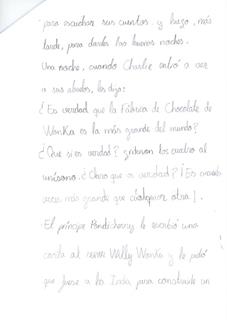 para escuchar sus cuentos y luego, más
tarde, para darles las buenas noches.
Una noche, cuando Charlie entró a ver
a sus abuelos, les dijo:
¿Es verdad que la Fábrica de Chocolate de
Wonka es la más grande del mundo?
¿Que si es verdad? gritaron los cuatro al
unísono. ¿Claro que es verdad? ¡Es
veces más grande que cualquier otra!.
El príncipe Pondicherry le escribió una
carta al señor Willy Wonka y le pidió
que fuese a la India para construirle un